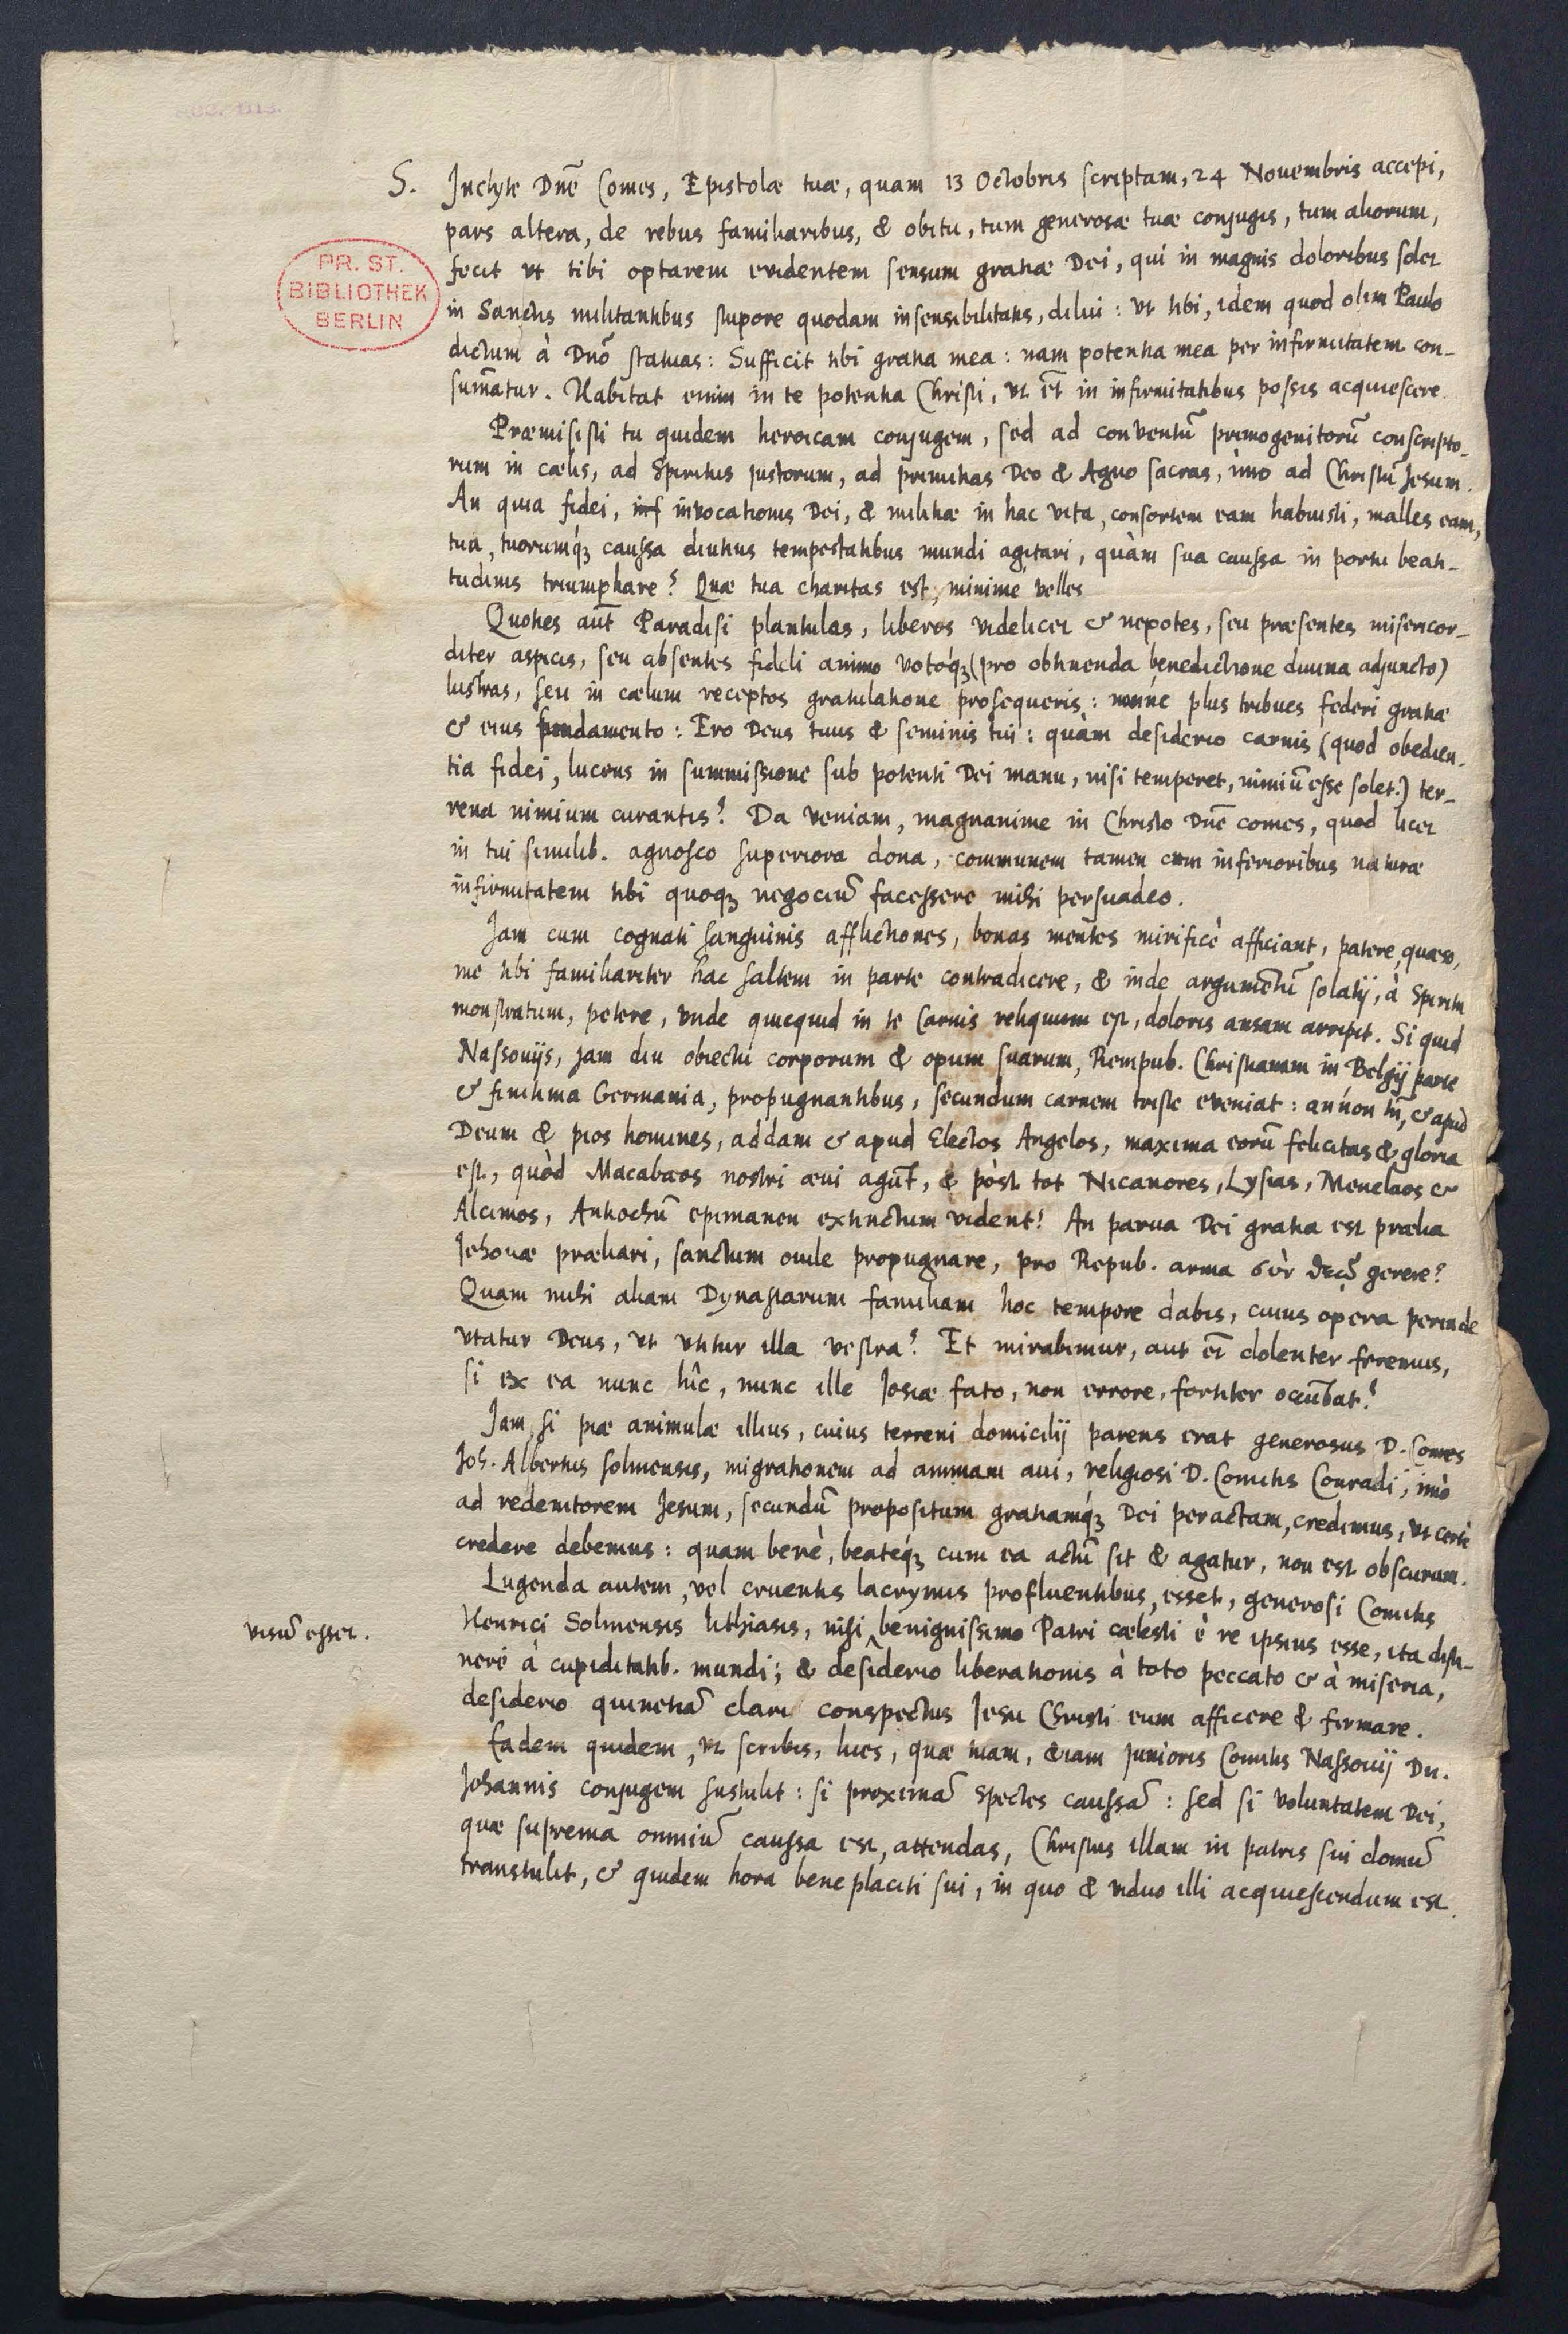 S. Inclyte Dnē Comes, Epistolæ tuæ, quam 13 Octobris scriptam, 24 Nouembris accepi,
pars altera, de rebus familiaribus, & obitu, tum generosæ tuæ conjugis, tum aliorum,
fecit vt tibi optarem evidentem sensum gratiæ Dei, qui in magnis doloribus solet
PR. ST.
BIBLIOTHEK
BERLIN
in Sanctis militantibus stupore quodam insensibilitatis, dilui: vt tibi, idem quod olim Paulo
dictum à Dnō statuas: Sufficit tibi gratia mea: nam potentia mea per infirmitatem con-
sum̄atur. Habitat enim in te potentia Christi, vt et̄ in infirmitatibus possis acquiescere.
Præmisisti tu quidem heroicam conjugem, sed ad conventū primogenitorū conscripto-
rum in cælis, ad Spiritus justorum, ad primitias Deo & Agno sacras, imo ad Christū Jesum.
An quia fidei, inf invocationis Dei, & militiæ in hac vita, consortem eam habuisti, malles eam,
tua, tuorumq́ꝫ caussa diutius tempestatibus mundi agitari, quàm sua caussa in portu beati-
tudinis triumphare? Quæ tua charitas est, minimè velles
Quoties aūt Paradisi plantulas, liberos videlicet & nepotes, seu præsentes misericor-
diter aspicis, seu absentes fideli animo votoq́ꝫ (pro obtinenda benedictione diuina adjuncto)
lustras, seu in cælum receptos gratulatione prosequeris: nonne plus tribues federi gratiæ
& eius fundamento: Ero Deus tuus & seminis tui: quàm desiderio carnis (quod obedien-
tia fidei, lucens in summissione sub potenti Dei manu, nisi temperet, nimiū esse solet.) ter-
rena nimium curantis? Da veniam, magnanime in Christo Dnē comes, quod licet
in tui similib. agnosco superiora dona, communem tamen cum inferioribus naturæ
infirmitatem tibi quoqꝫ negociū facessere mihi persuadeo.
Jam cum cognati sanguinis afflictiones, bonas mentes mirificè afficiant, patere, quæso,
me tibi familiariter hac saltem in parte contradicere, & inde argumētū solatij, à Spiritu
monstratum, petere, vnde quicquid in te Carnis reliquum est, doloris ansam arripit. Si quid
Nassouijs, jam diu obiectu corporum & opum suarum, Rempub. Christianam in Belgij parte
& finitima Germania, propugnantibus, secundum carnem triste eveniat: annon tn̄, & apud
Deum & pios homines, addam & apud Electos Angelos, maxima eorū felicitas & gloria
est, quòd Macabæos nostri æui agūt, & pòst tot Nicanores, Lysias, Menelaos &
Alcimos, Antiochū epimanen extinctum vident! An parua Dei gratia est prælia
Jehouæ præliari, sanctum ouile propugnare, pro Repub. arma σὺν θεῷ gerere?
Quam mihi aliam Dynastarum familiam hoc tempore dabis, cuius opera perinde
vtatur Deus, vt vtitur illa vestra? Et mirabimur, aut et̄ dolenter feremus,
si ex ea nunc hîc, nunc ille Josiæ fato, non errore, fortiter occūbat?
Jam si piæ animulæ illius, cuius terreni domicilij parens erat generosus D. Comes
Joh. Albertus Solmensis, migrationem ad animam aui, religiosi D. Comitis Conradi, imò
ad redemtorem Jesum, secundū propositum gratiamq́ꝫ Dei peractam, credimus, vt certè
credere debemus: quam benè, beateq́ꝫ cum ea actū sit & agatur, non est obscurum.
Lugenda autem, vel cruentis lacrymis profluentibus, esset, generosi Comitis
visū esset.
Henrici Solmensis lithiasis, nisi benignissimo Patri cælesti è re ipsius esse, ita disti-
neri à cupiditatib. mundi; & desiderio liberationis à toto peccato & à miseria,
desiderio quinetiā clari conspectus Jesu Christi eum afficere & firmare.
Eadem quidem, vt scribis, lues, quæ tuam, etiam junioris Comitis Nassouij Dn.
Johannis conjugem sustulit: si proximā spectes caussā: sed si voluntatem Dei,
quæ suprema omniū caussa est, attendas, Christus illam in patris sui domū
transtulit, & quidem hora beneplaciti sui, in quo & viduo illi acquiescendum est.